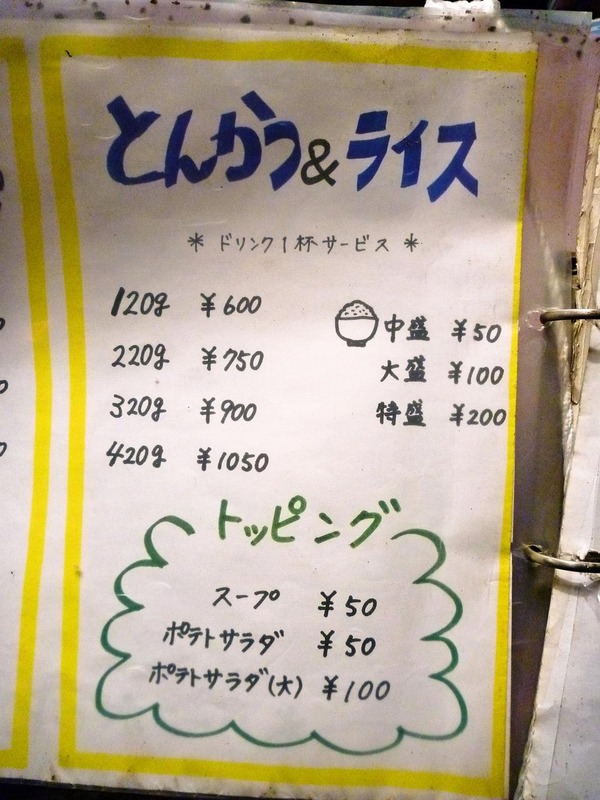 とんかつ&ライス
* ドリンク1杯サービス *
120g ¥600
220g ¥750
320g ¥900
420g ¥1050
中盛 ¥50
大盛 ¥100
特盛 ¥200
トッピング
スープ ¥50
ポテトサラダ ¥50
ポテトサラダ(大) ¥100